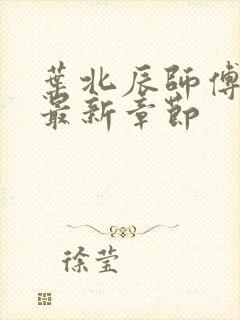 葉北辰師傅
最新章節
徐莹